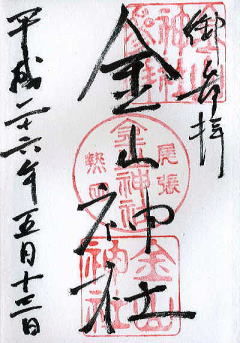 御奉拝
金山神社
尾張
熱田
金山神社
金山神社
平成二十六年五月十三日